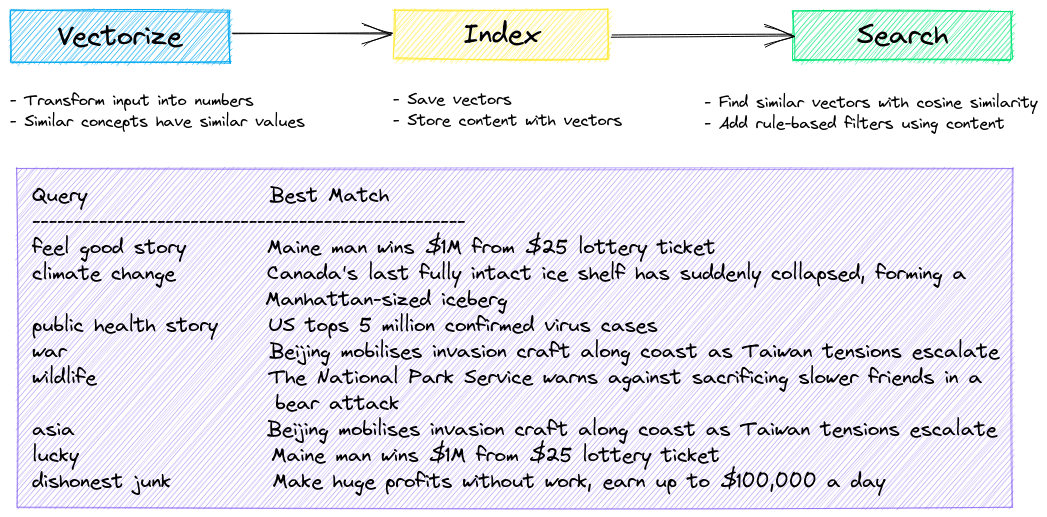 Vectorize
Index
Search
- Transform input into numbers
- Similar concepts have similar values
- Save vectors
- Store content with vectors
- Find similar vectors with cosine similarity
- Add rule-based filters using content
Query Best Match
----------------------------------------------------
feel good story Maine man wins $1M from $25 lottery ticket
climate change Canada's last fully intact ice shelf has suddenly collapsed, forming a
Manhattan-sized iceberg
public health story US tops 5 million confirmed virus cases
war Beijing mobilises invasion craft along coast as Taiwan tensions escalate
wildlife The National Park Service warns against sacrificing slower friends in a
bear attack
asia Beijing mobilises invasion craft along coast as Taiwan tensions escalate
lucky Maine man wins $1M from $25 lottery ticket
dishonest junk Make huge profits without work, earn up to $100,000 a day